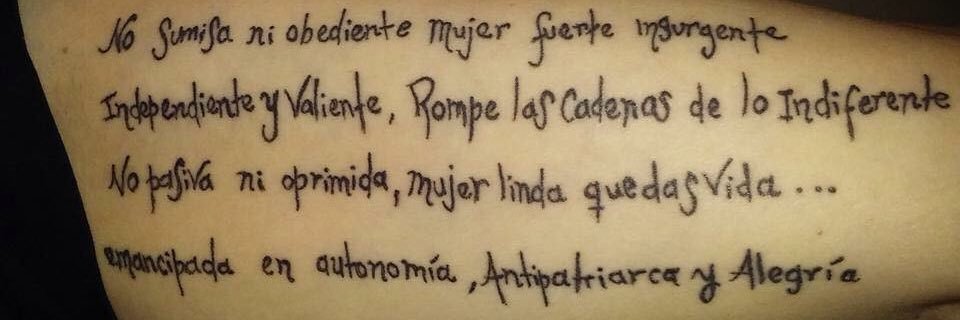 No sumisa ni obediente mujer fuerte insurgente
Independiente y Valiente, Rompe las Cadenas de lo Indiferente
No pasiva ni oprimida, mujer linda que das Vida ...
emancipada en autonomía, Antipatriarca y Alegría